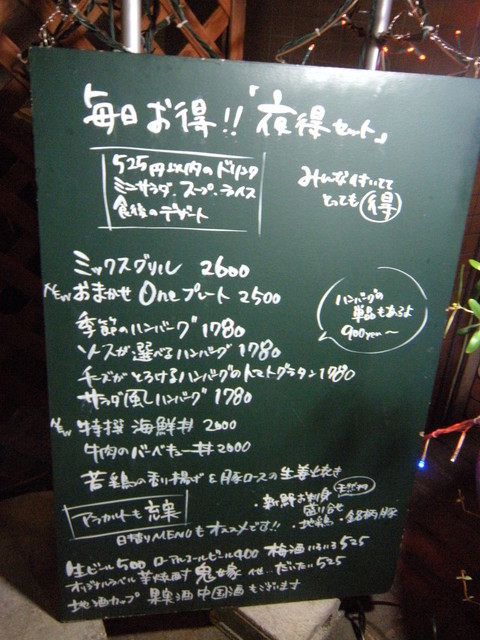 毎日お得!!「夜得セット」
525円以内のドリンク
ミニサラダ、スープ、ライス
食後のデザート
みんな付いてて
とっても 得
ミックスグリル 2600
NEW おまかせ Oneプレート 2500
季節のハンバーグ 1780
ソースが選べるハンバーグ 1780
チーズがとろけるハンバーグのトマトグラタン 1780
サラダ風ハンバーグ 1780
NEW 特撰 海鮮丼 2000
牛肉のバーベキュー丼 2000
若鶏の香り揚げ & 豚ロースの生姜焼き
ハンバーグの
単品もあるよ
900yen〜
アラカルトも充実
・新鮮お刺身
盛り合せ
・地鶏 ・銘柄豚
日替りMENUもオススメです!!
生ビール500 ローアルコールビール400 梅酒いろいろ525
オリジナルラベル芋焼酎 鬼嫁 他…だいたい525
地酒カップ 果実酒 中国酒もございます